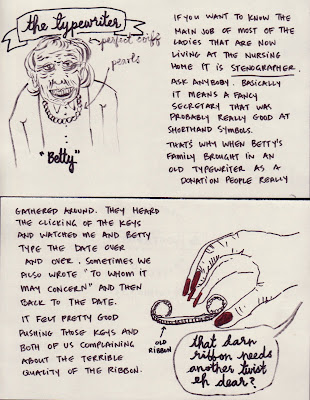 the typewriter
perfect coiff
pearls
"Betty"
IF YOU WANT TO KNOW THE
MAIN JOB OF MOST OF THE
LADIES THAT ARE NOW
LIVING AT THE NURSING
HOME IT IS STENOGRAPHER.
ASK ANYBODY. BASICALLY
IT MEANS A FANCY
SECRETARY THAT WAS
PROBABLY REALLY GOOD AT
SHORTHAND SYMBOLS.
THAT'S WHY WHEN BETTY'S
FAMILY BROUGHT IN AN
OLD TYPEWRITER AS A
DONATION PEOPLE REALLY
GATHERED AROUND. THEY HEARD
THE CLICKING OF THE KEYS
AND WATCHED ME AND BETTY
TYPE THE DATE OVER
AND OVER. SOMETIMES WE
ALSO WROTE "TO WHOM IT
MAY CONCERN" AND THEN
BACK TO THE DATE.
IT FELT PRETTY GOOD
PUSHING THOSE KEYS AND
BOTH OF US COMPLAINING
ABOUT THE TERRIBLE
QUALITY OF THE RIBBON.
OLD
RIBBON
that darn
ribbon needs
another twist
eh dear?